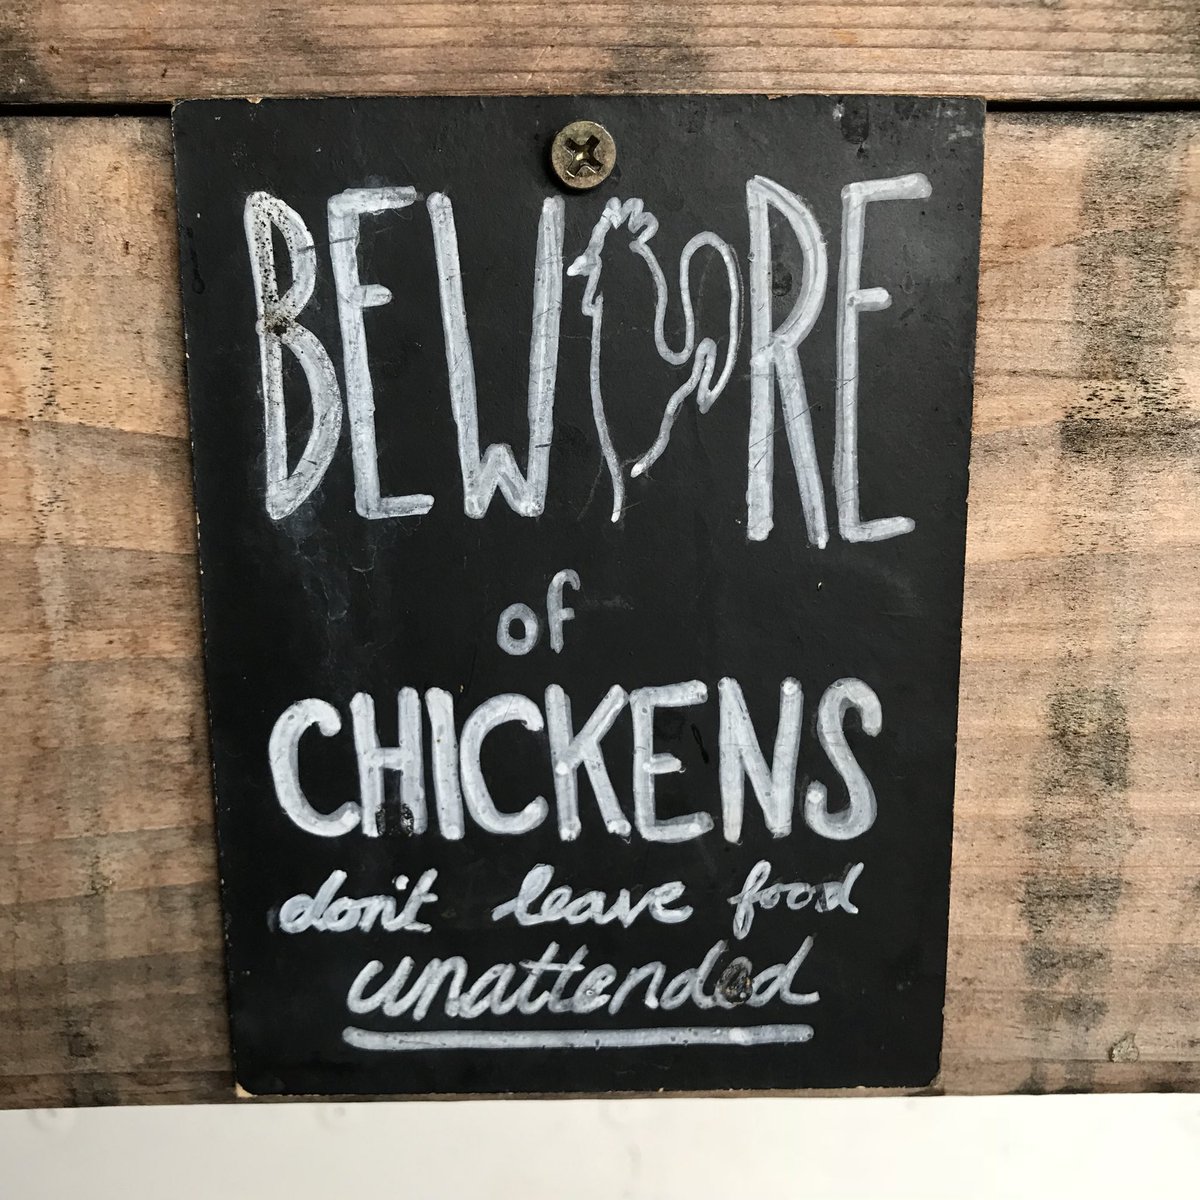 BEWARE
of
CHICKENS
don't leave food
unattended